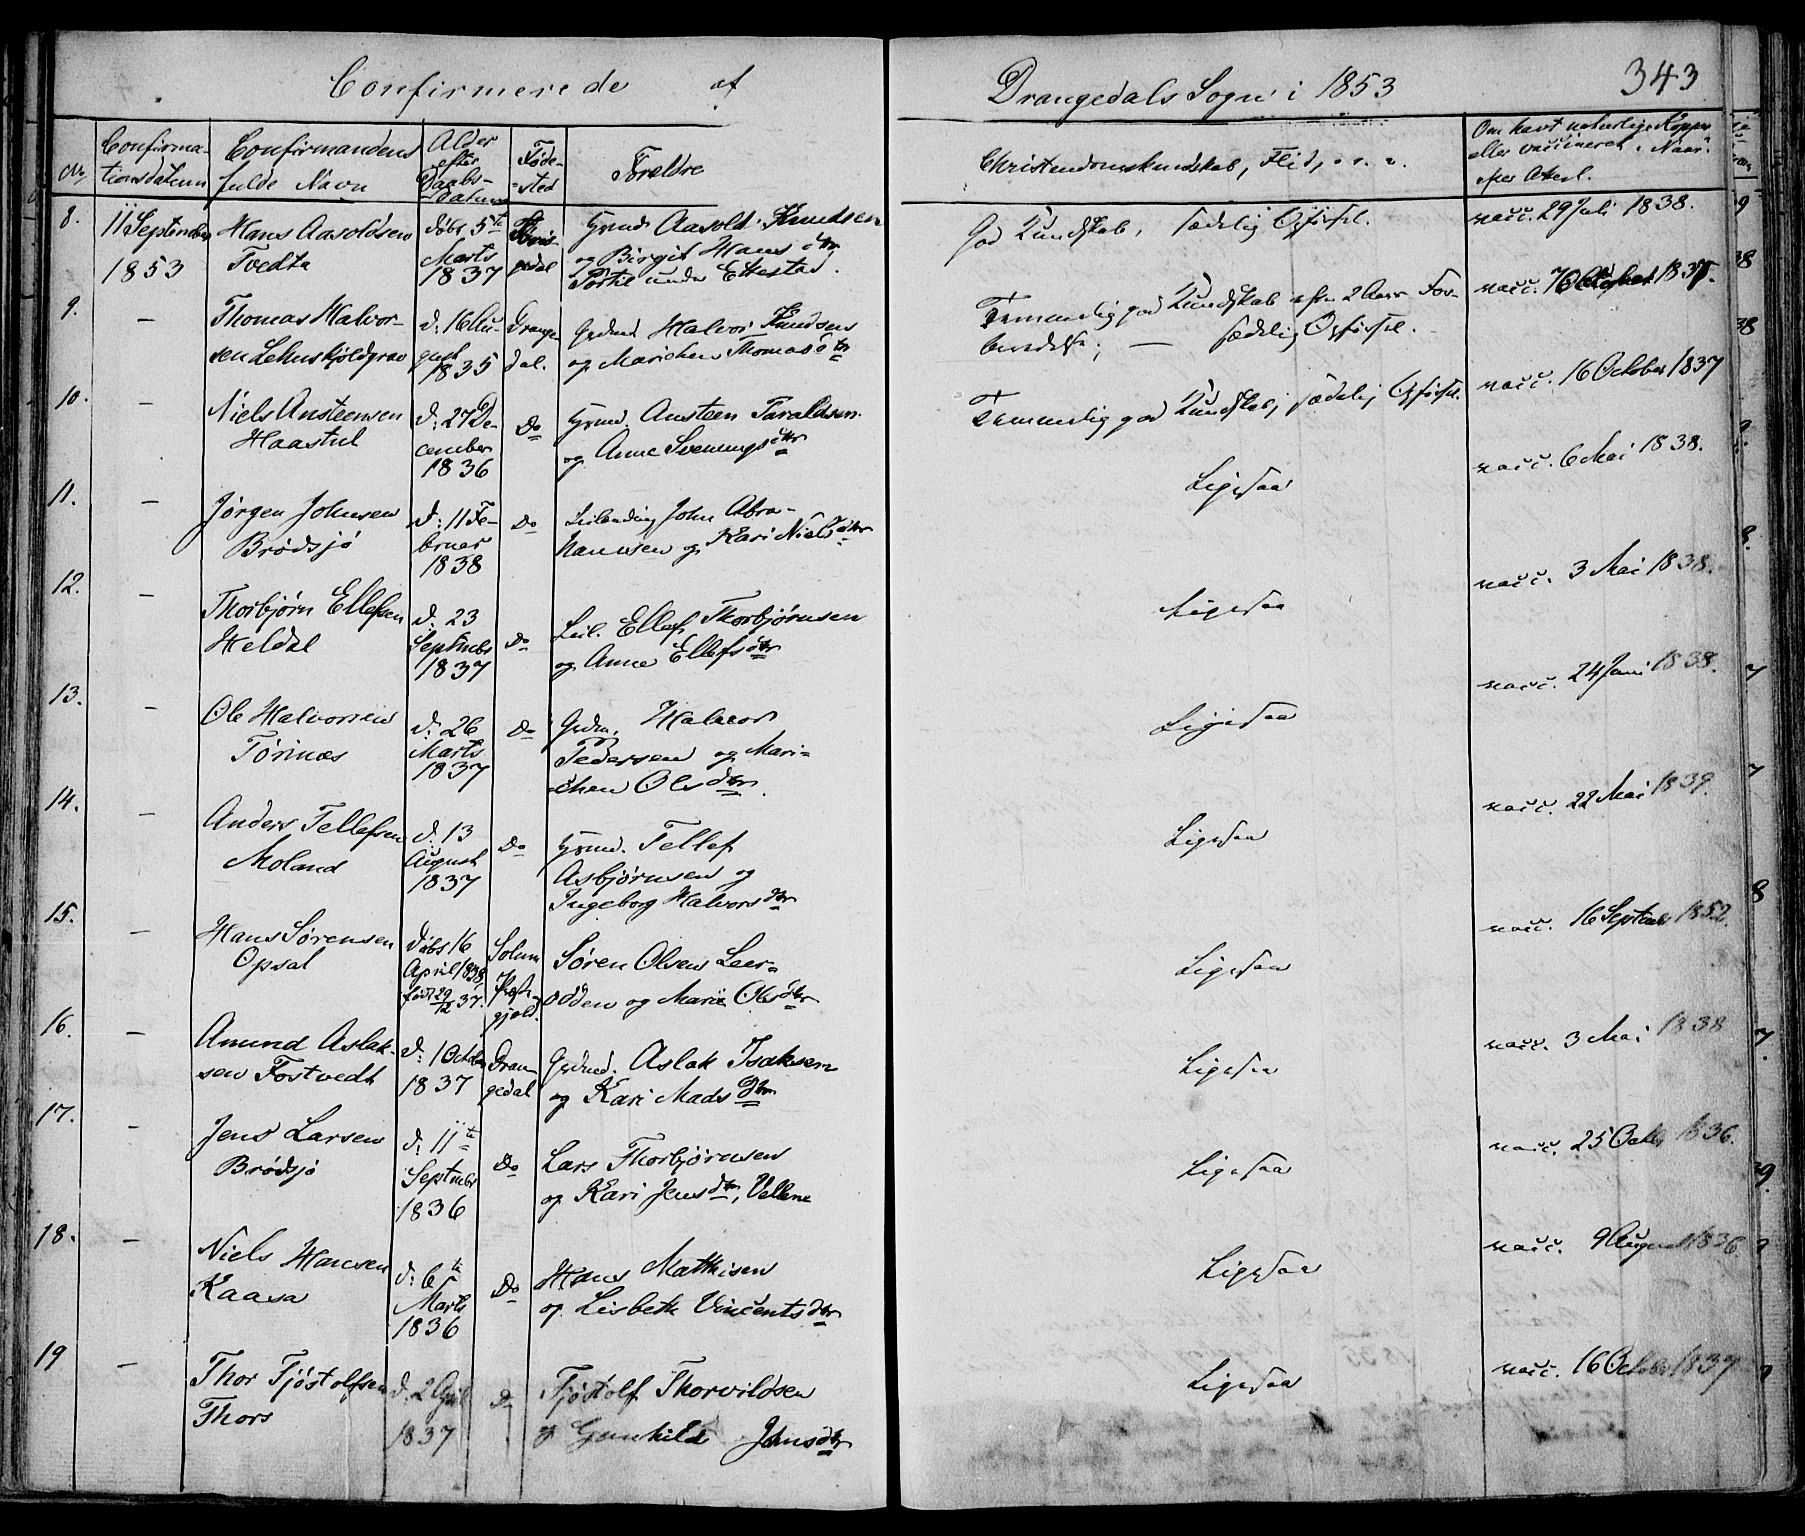 Confirmerede af Drangedals Sogn i 1853 343
No
Confirma-
tionsdatum
Confirmandens
fulde Navn
Alder
efter
Daabs-
Datum
Føde-
sted
Forældre
Christendomskundskab, Flid, o. s. v.
Om havt naturlige Kopper
eller vaccineret. Naar.
efter Attest.
8.
11 September
1853
Hans Aasoldsen
Tvedta
døbt 5te
Marts
1837
gedal
Grmd. Aasold Knudsen
og Birgit Hans dtr
under Ettestad.
God Kundskab, sædelig Opførsel.
vacc. 29 Juli 1838.
9.
—
Thomas Halvor-
sen Lehnskjoldgrav
d: 16 Au-
gust
1835
Drange-
dal.
Grdmd. Halvor Knudsen
og Marichen Thomasdtr
Temmelig god Kundskab efter 2 Aars For-
beredelse; — sædelig Opførsel.
vacc. October
10.
—
Niels Ansteensen
Haastul
d: 27 De-
cember
1836
Do
Grmd. Ansteen Taraldsen
og Anne Svenungsdtr
Temmelig god Kundskab, sædelig Opførsel.
vacc. 16 October 1837
11.
—
Jørgen Johnsen
Brødsjø
d: 11 Fe-
bruar
1838
Do
Leilending John Abra-
hamsen og Kari Nielsdtr
Ligesaa
vacc. 6 Mai 1838.
12.
—
Thorbjørn Ellefsen
Heldal
d. 23
Septembr
1837
Do
Leil. Ellef Thorbjørnsen
og Anne Ellefsdtr
Ligesaa
vacc. 3 Mai 1838.
13.
—
Ole Halvorsen
Tørinæs
d: 26
Marts
1837
Do
Grdm. Halvor
Pedersen og Mari-
chen Olsdtr.
Ligesaa
vacc. 24 Juni 1838.
14.
—
Anders Tellefsen
Moland
d. 13
August
1837
Do
Grmd. Tellef
Asbjørnsen og
Ingeborg Halvorsdtr
Ligesaa
vacc. 22 Mai 1839.
15.
—
Hans Sørensen
Opsal
Døbt 16
April 1838,
født 29/12 37.
Solum
Præste-
gjæld.
Søren Olsen Leer-
odden og Marie Olsdtr
Ligesaa
vacc. 16 Septembr 1852.
16.
—
Amund Aslak-
sen Fostvedt
d: 1 October
1837
Dran-
gedal
Grdmd. Aslak Isaksen
og Kari Mads Dtr
Ligesaa
vacc. 3 Mai 1838
17.
—
Jens Larsen
Brødsjø
d: 11te
Septembr
1836
Do
Lars Thorbjørnsen
og Kari Jensdtr, Vellene
Ligesaa
vacc. 25 Octbr 1836.
18.
—
Niels Hansen
Kaasa
d: 6te
Marts
1836
Do
Hans Matthisen
og Lisbeth Vincentsdtr
Ligesaa
vacc. 9 August 1836
19
—
Thor Tjøstolfsen
Thors
d. 2 April
1837
Do
Tjøstolf Thorvildsen
og Gunhild Jensdtr
Ligesaa
vacc. 16 October 1837